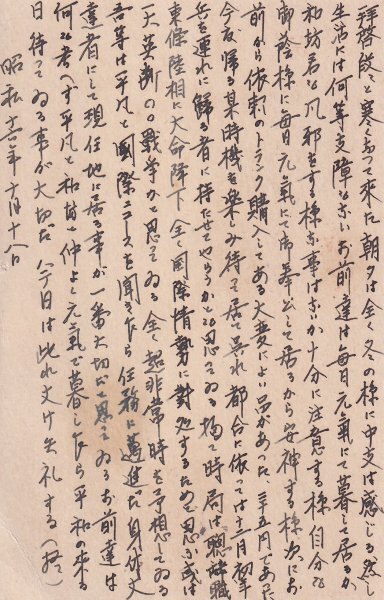 拝啓段々と寒くなって来た 朝夕は全く冬の様に中支は感じる 然し
生活には何等支障もない お前達は毎日元気にて暮して居るか
和坊君も風邪をする様な事はないか 十分に注意する様 自分も
御蔭様に毎日元気にて御奉公して居るから安神する様 次にお
前から依頼のトランク購入してある 大変によい品があった、三十五円であった
今度帰る某時機を楽しみ待って居て呉れ 都合に依っては十一月初
兵を連れに帰る者に持たせてやらうかとも思って ゐる 扨て時局は 総辞職
東條陸相に大命降下 全く国際情勢に対処するためと思ふ 或は
一大英断の 戦争かと思って ゐる 全く超非常時を予想して ゐる
吾等は平凡と国際ニュースを聞き乍ら任務に邁進だ 身体丈
達者にして現任地に居る事が一番大切だと思って ゐる お前達は
何も考へず平凡と和坊と仲よく元気で暮し乍ら平和の来る
日待って ゐる事が大切だ 今日は此れ丈け失礼する
昭和十六年十月十八日